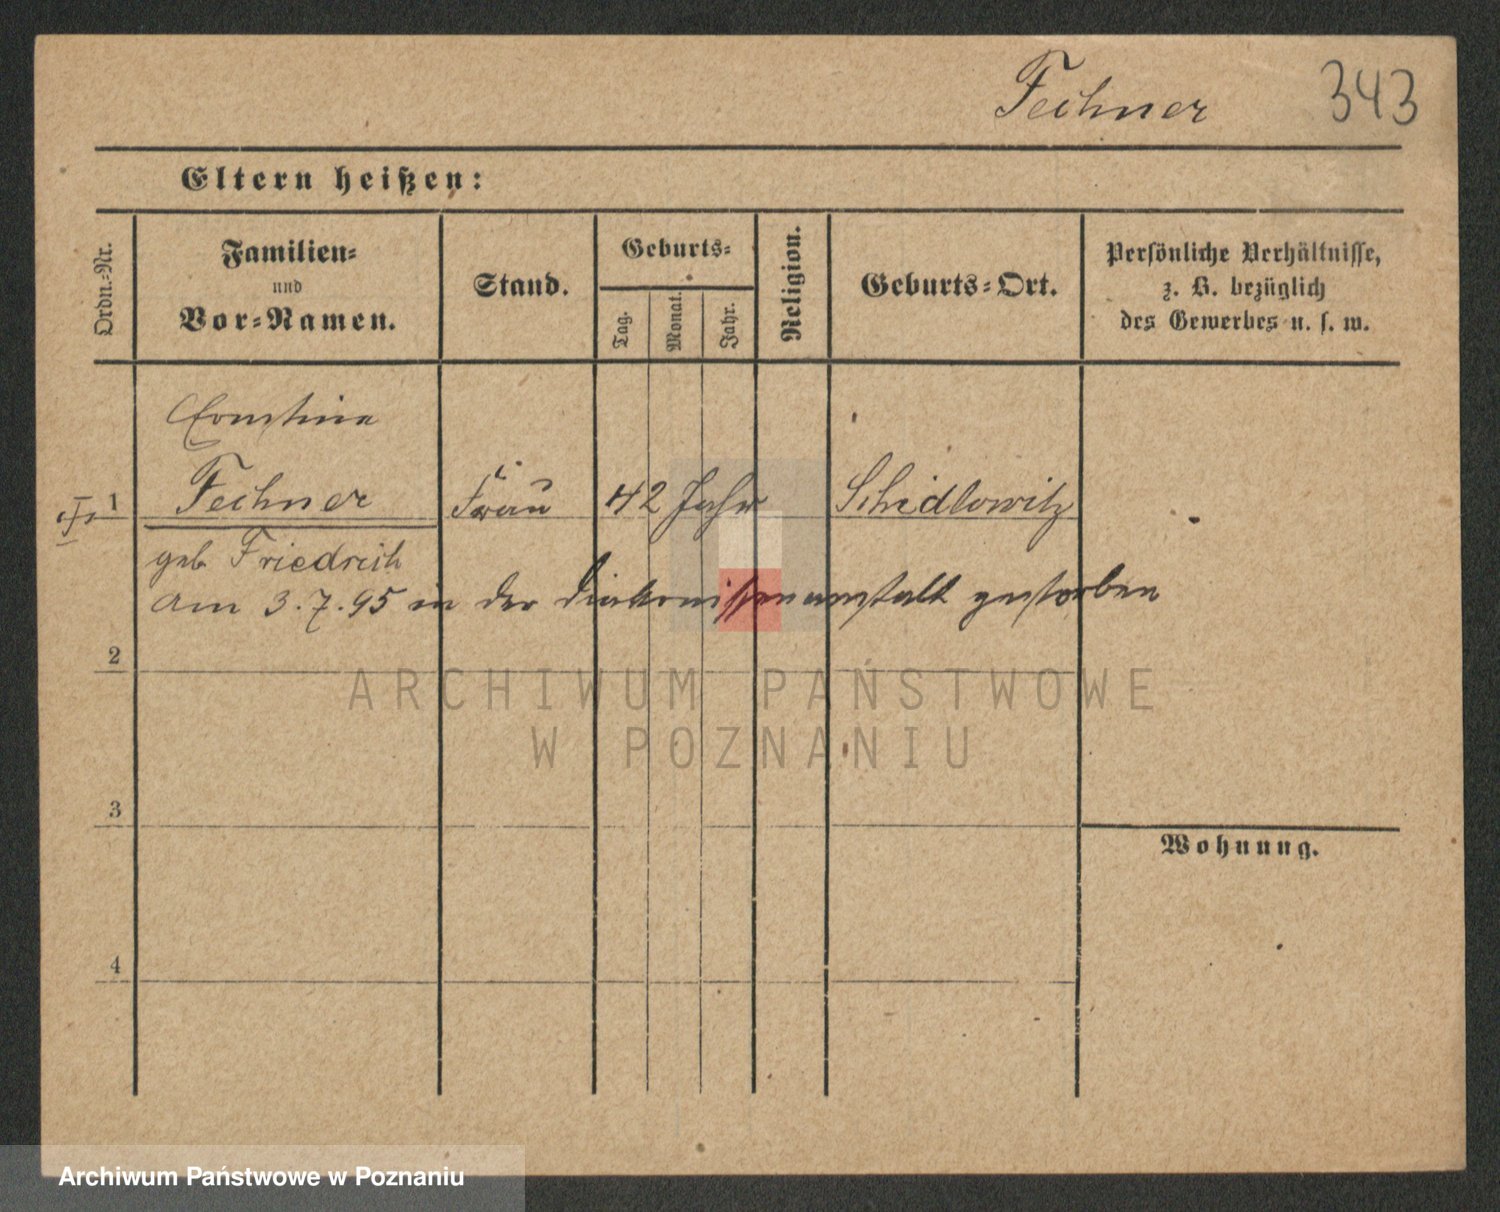 Fechner 343
Eltern heißen:
Ordn.-Nr.
Familien-
und
Vor-Namen.
Stand.
Geburts-
Tag.
Monat.
Jahr.
Religion.
Geburts-Ort.
Persönliche Verhältnisse,
z. B. bezüglich
des Gewerbes u. s. w.
Ernstine
1 Fechner Frau 42 Jahr Schidlowitz
geb. Friedrich
am 3.7.95 in der Diakonissenanstalt gestorben
2
ARCHIWUM PAŃSTWOWE
W POZNANIU
3
Wohnung.
4
Archiwum Państwowe w Poznaniu